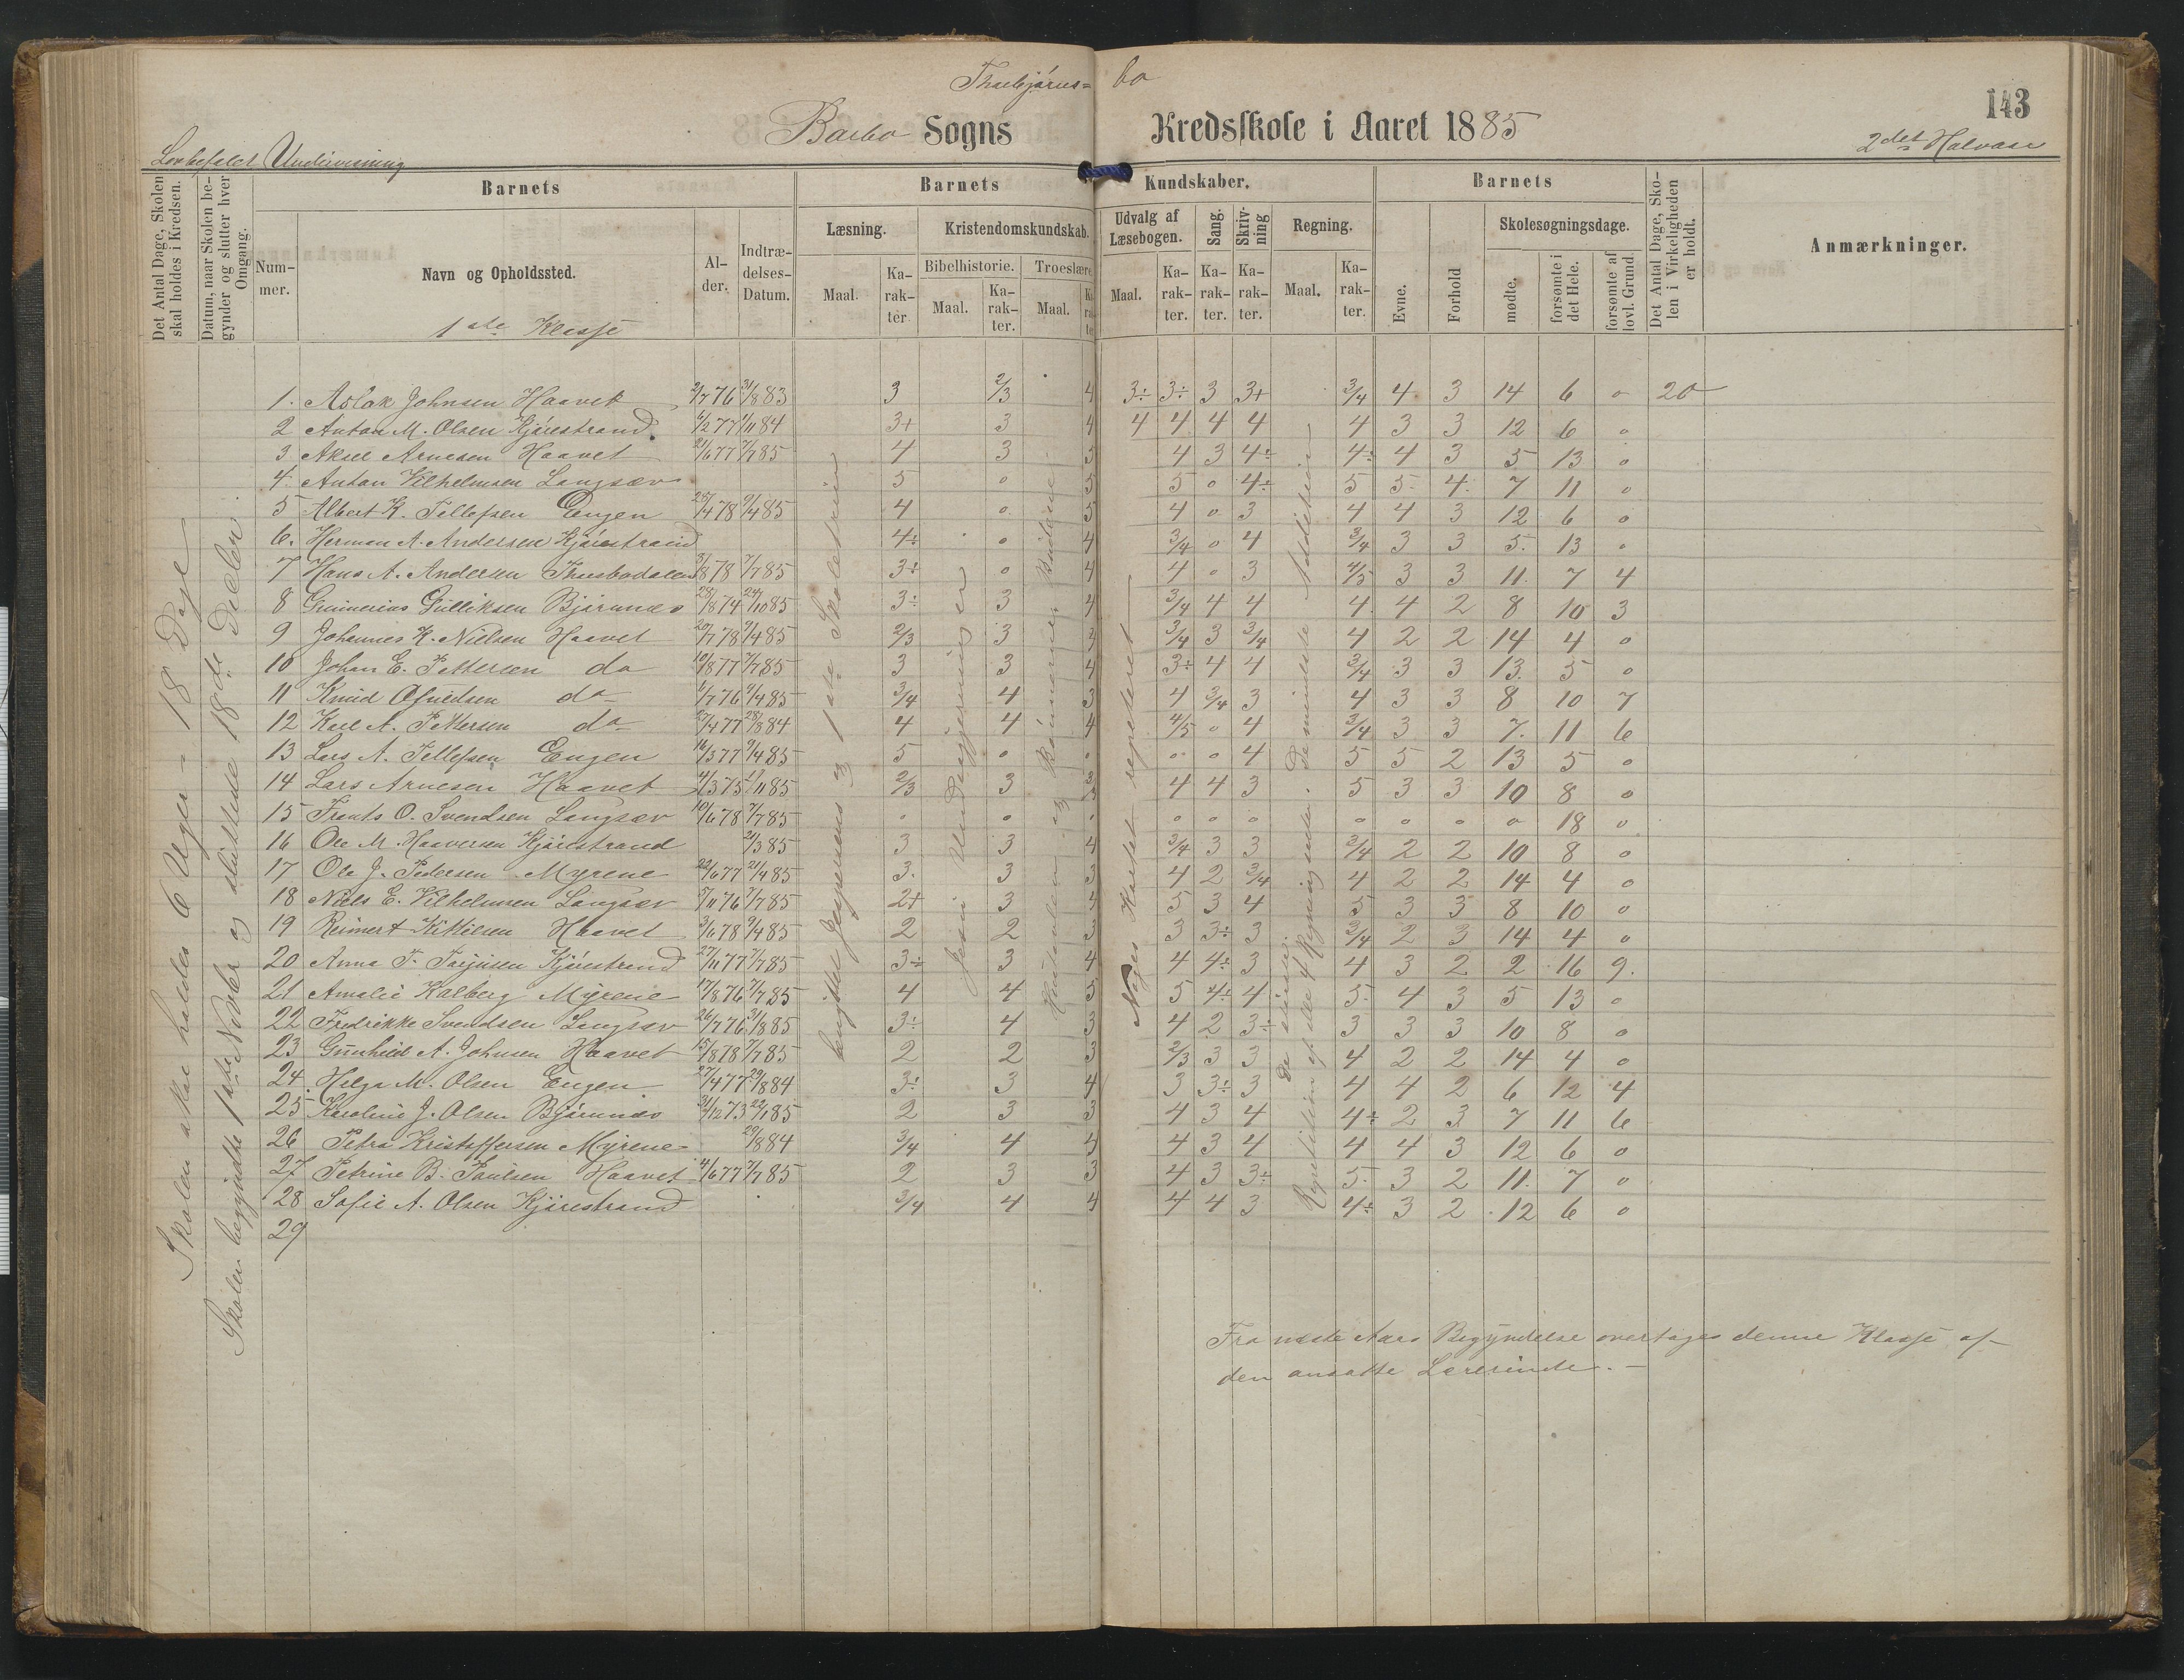 bo
Barbo Sogns Kredsskole i Aaret 1885
143
Lovbefalet Undervisning
2det Halvaar
Det Antal Dage, Skolen skal holdes i Kredsen.
Datum, naar Skolen begynder og slutter hver Omgang.
Barnets
Nummer.
Navn og Opholdssted.
1ste Klasse
Alder.
Indtrædelses-Datum.
Barnets Kundskaber.
Læsning.
Maal.
Karakter.
Kristendomskundskab.
Bibelhistorie.
Maal.
Karakter.
Troeslære
Maal.
Udvalg af Læsebogen.
Maal.
Karakter.
Sang.
Karakter.
Skrivning
Karakter.
Regning.
Maal.
Karakter.
Barnets
Evne.
Forhold
Skolesøgningsdage.
mødte.
forsømte i det Hele.
forsømte af lovl. Grund.
Det Antal Dage, Skolen i Virkeligheden er holdt.
Anmærkninger.
Skolen skal holdes 6 Uger = 18 Dage
Skolen begyndte 1ste Novbr og sluttede 18de Decbr.
1. Aslak Johnsen Haavet 2/7 76 31/8 83 3 2/3 4 3÷ 3÷ 3 3+ 3/4 4 3 14 6 0 20
2 Anton M. Olsen Kjørestrand 3+ 3 4 4 4 4 4 4 3 3 12 6 0
3 Aksel Arnesen Haavet 21/6 77 7/7 85 4 3 5 4 3 4÷ 4÷ 4 3 5 13 0
4. Anton Vilhelmsen Langsæv 5 0 5 5 0 4÷ 5 5 4 7 11 0
5 Albert K. Tellefsen Engen 28/4 78 9/4 85 4 0 5 4 0 3 4 4 3 12 6 0
6. Herman A. Andersen Kjørestrand 4÷ 0 4 3/4 0 4 3/4 3 3 5 13 0
7 Hans A. Andersen 3/8 78 7/7 85 3÷ 0 4 4 0 3 4/5 3 3 11 7 4
8 Gulliksen Bjørnnæs 28/8 74 24/10 85 3÷ 3 4 3/4 4 4 4 4 2 8 10 3
9 Johannes K. Nielsen Haavet 20/7 78 9/4 85 2/3 3 3 3/4 3 3/4 4 2 2 14 4 0
10 Johan E. Pettersen do 19/8 77 7/7 85 3 3 4 3÷ 4 4 3/4 3 3 13 5 0
11 Knud do 1/7 76 9/4 85 3/4 4 3 4 3/4 3 4 3 3 8 10 7
12 Karl A. Pettersen do 27/4 77 28/8 84 4 4 4 4/5 0 4 3/4 3 3 7 11 6
13 Lars A. Tellefsen Engen 16/3 77 9/4 85 5 0 0 0 0 4 5 5 2 13 5 0
14 Lars Arnesen Haavet 4/3 75 85 2/3 3 4 4 3 5 3 3 10 8 0
15 Frants O. Svendsen Langsæv 10/6 78 7/7 85 0 0 0 0 0 0 0 0 0 0 18 0
16 Ole M. Haaversen Kjørestrand 21/3 85 3 3 4 3/4 3 3 3/4 2 2 10 8 0
17 Ole J. Pedersen Myrene 22/6 77 21/4 85 3 3 3 4 2 3/4 4 2 2 14 4 0
18 Niels E. Vilhelmsen Langsæv 5/11 76 7/7 85 2+ 3 4 5 3 4 5 3 3 8 10 0
19 Reinert Kittilsen Haavet 3/6 78 9/4 85 2 2 3 3 3÷ 3 3/4 2 3 14 4 0
20 Anna T. Kjørestrand 27/11 77 7/7 85 3÷ 3 4 4 4÷ 3 4 3 2 2 16 9
21 Amalie Kalberg Myrene 17/8 76 7/7 85 4 4 5 5 4÷ 4 5 4 3 5 13 0
22 Fredrikke Svendsen Langsæv 26/7 76 31/8 85 3÷ 4 3 4 2 3÷ 3 3 3 10 8 0
23 Gunhild A. Johnsen Haavet 15/8 78 7/7 85 2 2 3 2/3 3 3 4 2 2 14 4 0
24 Helga M. Olsen Engen 27/4 77 29/8 84 3÷ 3 4 3 3÷ 3 4 4 2 6 12 4
25 Karoline J. Olsen Bjørnnæs 31/12 73 22/1 85 2 3 3 4 3 4 4÷ 2 3 7 11 6
26 Petra Kristoffersen Myrene 29/8 84 3/4 4 5 4 3 4 4 4 3 12 6 0
27 Petrine B. Paulsen Haavet 4/6 77 7/7 85 2 3 3 4 3 3÷ 5 3 2 11 7 0
28 Sofie A. Olsen Kjørestrand 3/4 4 4 4 4 3 4÷ 3 2 12 6 0
29
benyttet Jespersens og 1ste Skoletrin
Jesu Undergjerninger
Noget Hørtet repeteret
De mindste Addition
Repetition af de 4 Regningsarter.
Fra næste Aars Begyndelse overtages denne Klasse af
den ansatte Lærerinde. –